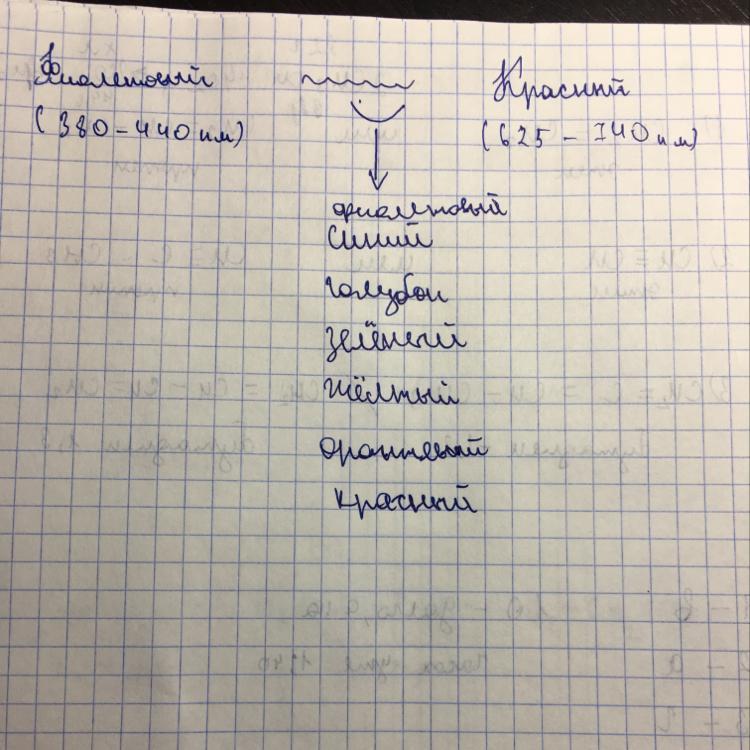 Фиолетовый Красный
(380-440 нм) (625-740 нм)
фиолетовый
синий
голубой
зелёный
жёлтый
оранжевый
красный